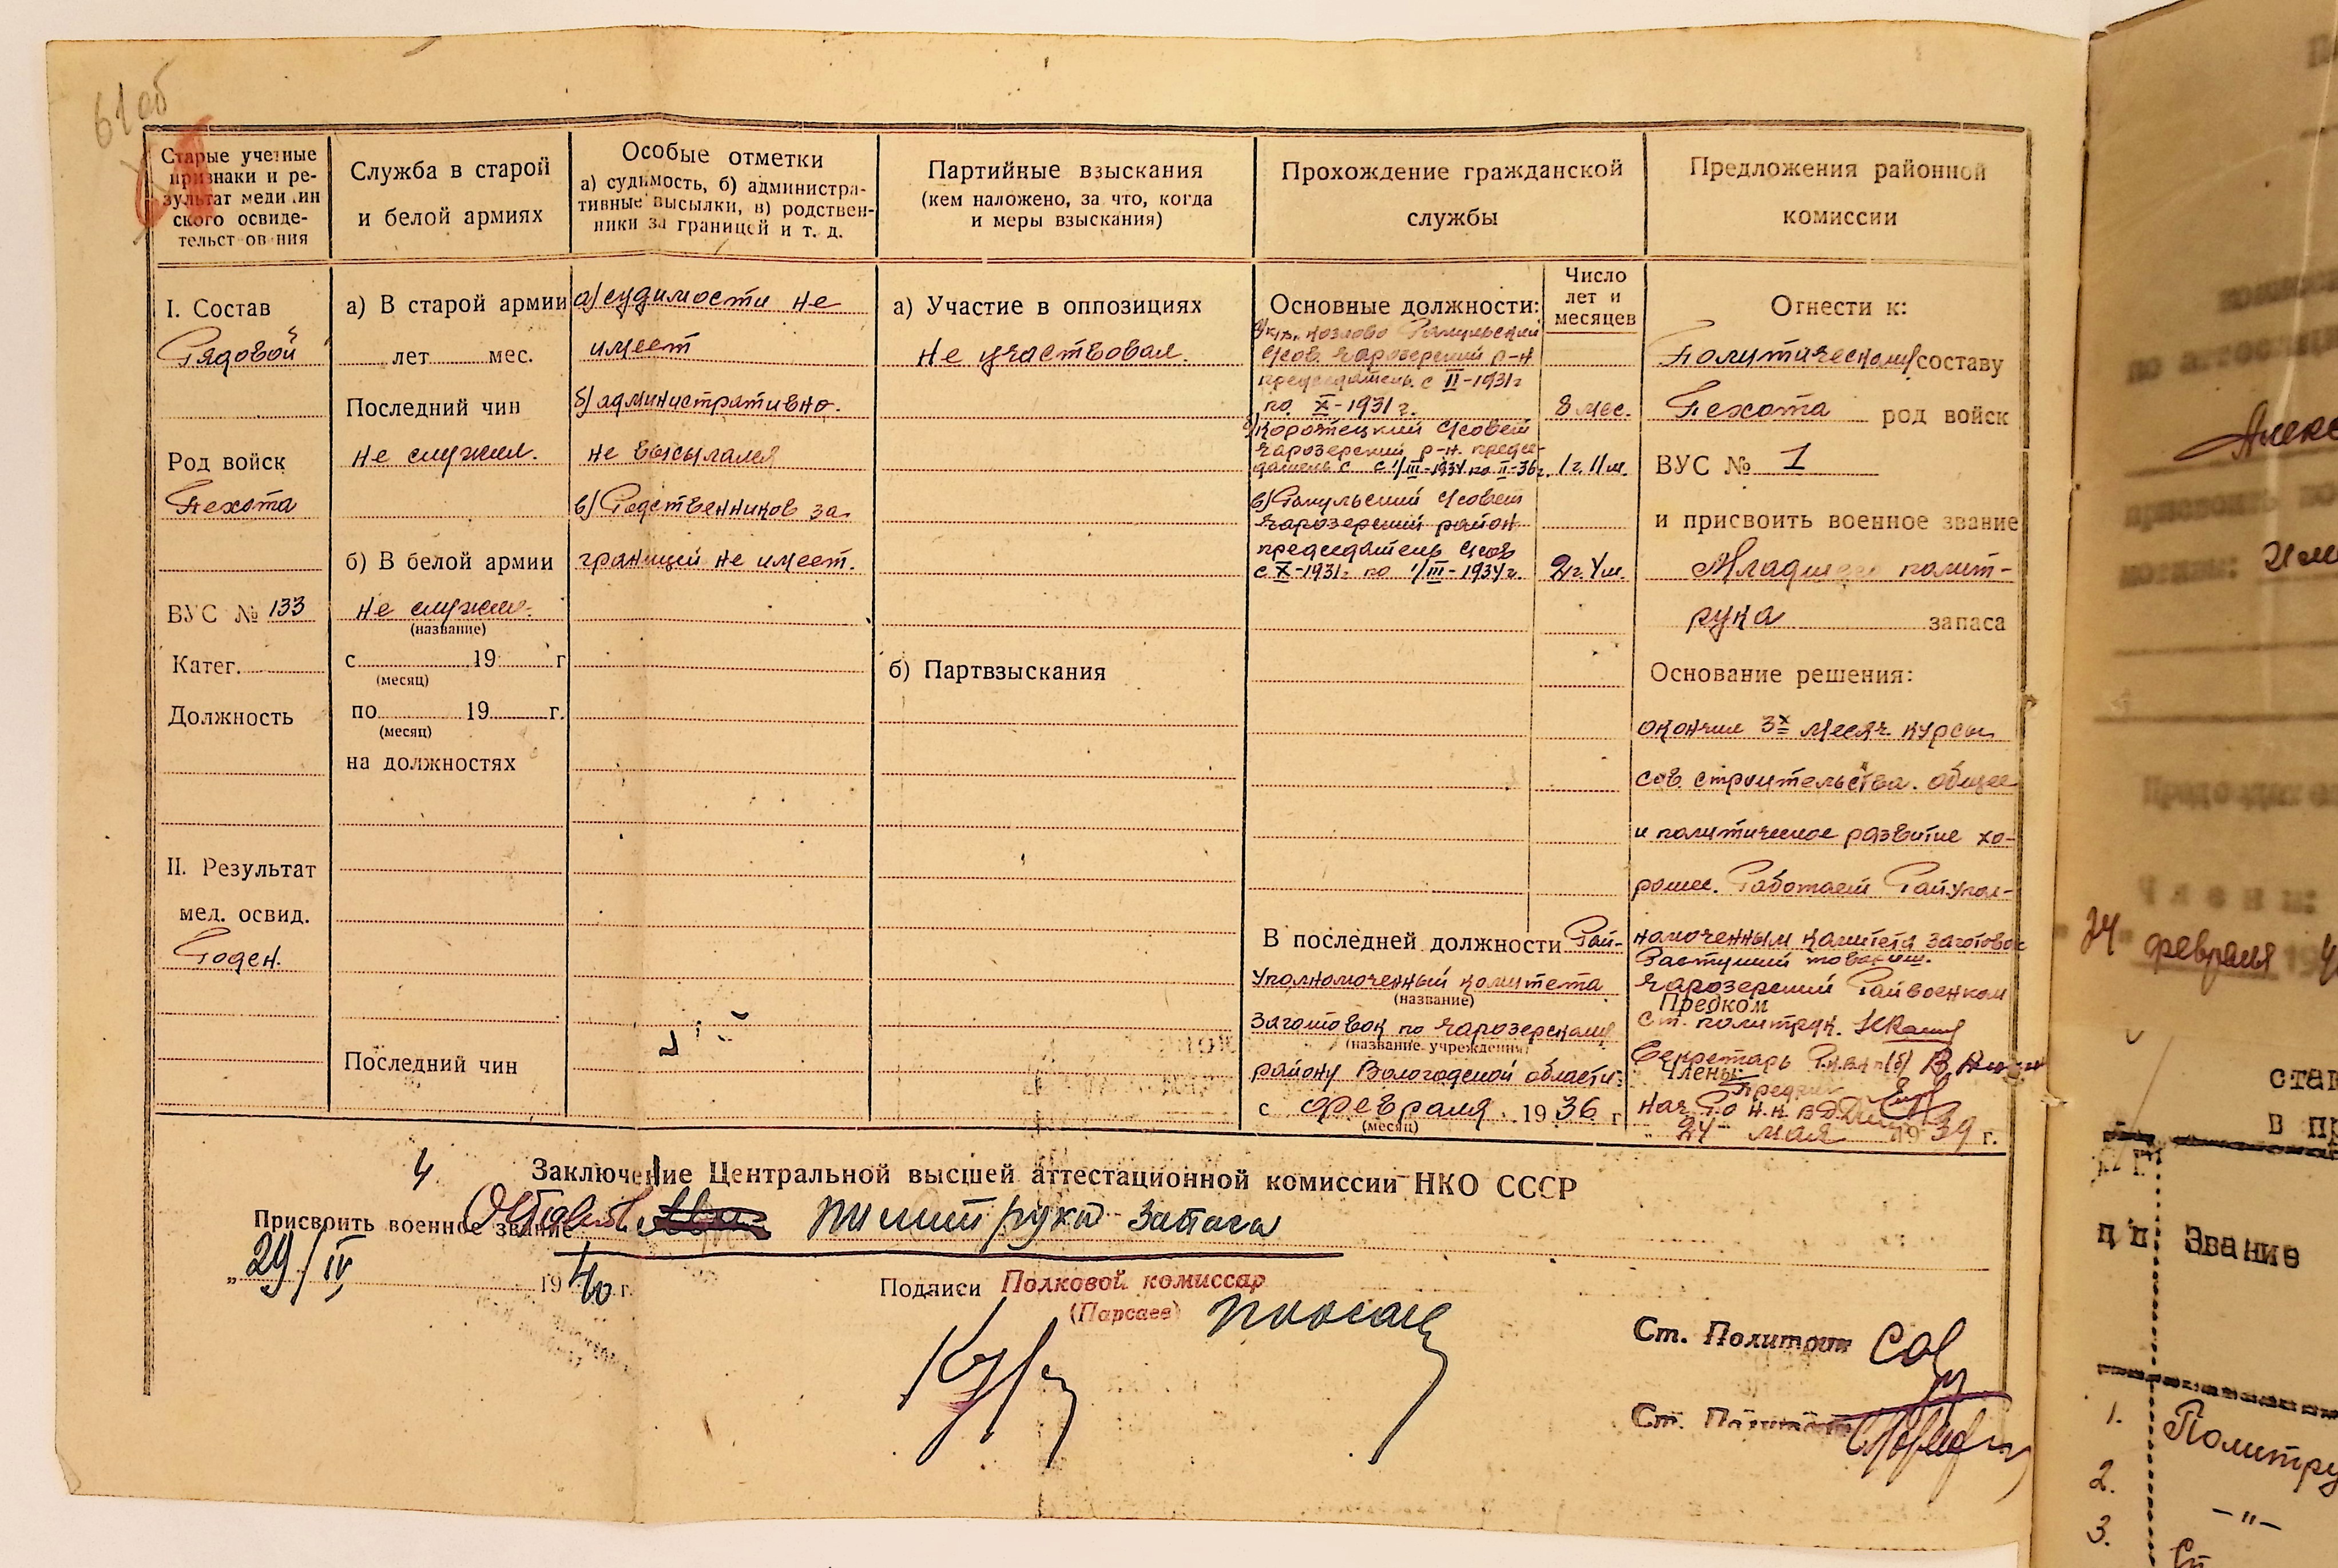 61 об
Старые учетные
признаки и ре-
зультат медицин
ского освиде-
тельствования
Служба в старой
и белой армиях
Особые отметки
а) судимость, б) администра-
тивные высылки, в) родствен-
ники за границей и т. д.
Партийные взыскания
(кем наложено, за что, когда
и меры взыскания)
Прохождение гражданской
службы
Предложения районной
комиссии
I. Состав
Рядовой
Род войск
Пехота
ВУС № 133
Катег.
Должность
II. Результат
мед. освид.
Годен.
а) В старой армии
лет мес.
Последний чин
не служил.
б) В белой армии
не служил.
(название)
с 19 г
(месяц)
по 19 г.
(месяц)
на должностях
Последний чин
а) судимости не
имеет
б) административно.
не высылался
в) Родственников за
границей не имеет.
а) Участие в оппозициях
Не участвовал.
б) Партвзыскания
Основные должности:
Число
лет и
месяцев
козлово
р-н
председатель с II-1931г
по X-1931 г. 8 мес.
Коротецкий
Чарозерский р-н. предсе-
датель с с 1/III-1934 по II-36г. 1 г. 11 м.
в)
Чарозерский район
председатель
с X-1931г по 1/III-1934г. 2 г. 4 м.
В последней должности Рай-
уполномоченный комитета
(название)
заготовок по Чарозерскому
(название учреждения)
району Вологодской области:
с февраля 1936 г
(месяц)
Отнести к:
Политическому составу
Пехота род войск
ВУС № 1
и присвоить военное звание
Младшего полит-
рука запаса
Основание решения:
окончил 3х месяч. курсы
сов. строительства. общее
и политическое развитие хо-
рошее. Работает Райупол-
номоченным комитета заготовок
Чарозерский Райвоенком
Предком
ст. политрук.
Секретарь
Члены:
Нач. Р.О Н.К.В.Д.
24 мая 1939 г.
4
Заключение Центральной высшей аттестационной комиссии НКО СССР
Присвоить военное звание политрука запаса
„29/IV 1940 г.
Подписи Полковой комиссар
(Парсаев)
Ст. Политрук
Ст. Политрук
24 февраля
Звание
1. Политру
2. —"—
3.